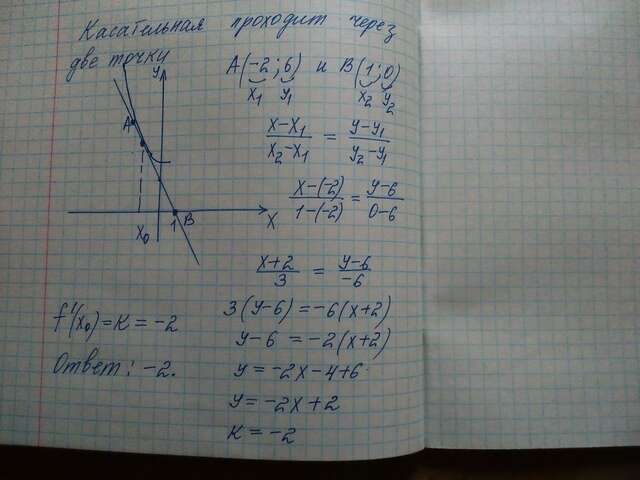 Касательная проходит через
две точки
A(-2; 6) и B(1; 0)
x₁ y₁ x₂ y₂
y
A
x₀
1
B
x
(x-x₁)/(x₂-x₁) = (y-y₁)/(y₂-y₁)
(x-(-2))/(1-(-2)) = (y-6)/(0-6)
(x+2)/3 = (y-6)/-6
3(y-6) = -6(x+2)
y-6 = -2(x+2)
y = -2x-4+6
y = -2x+2
k = -2
f'(x₀) = k = -2
Ответ: -2.